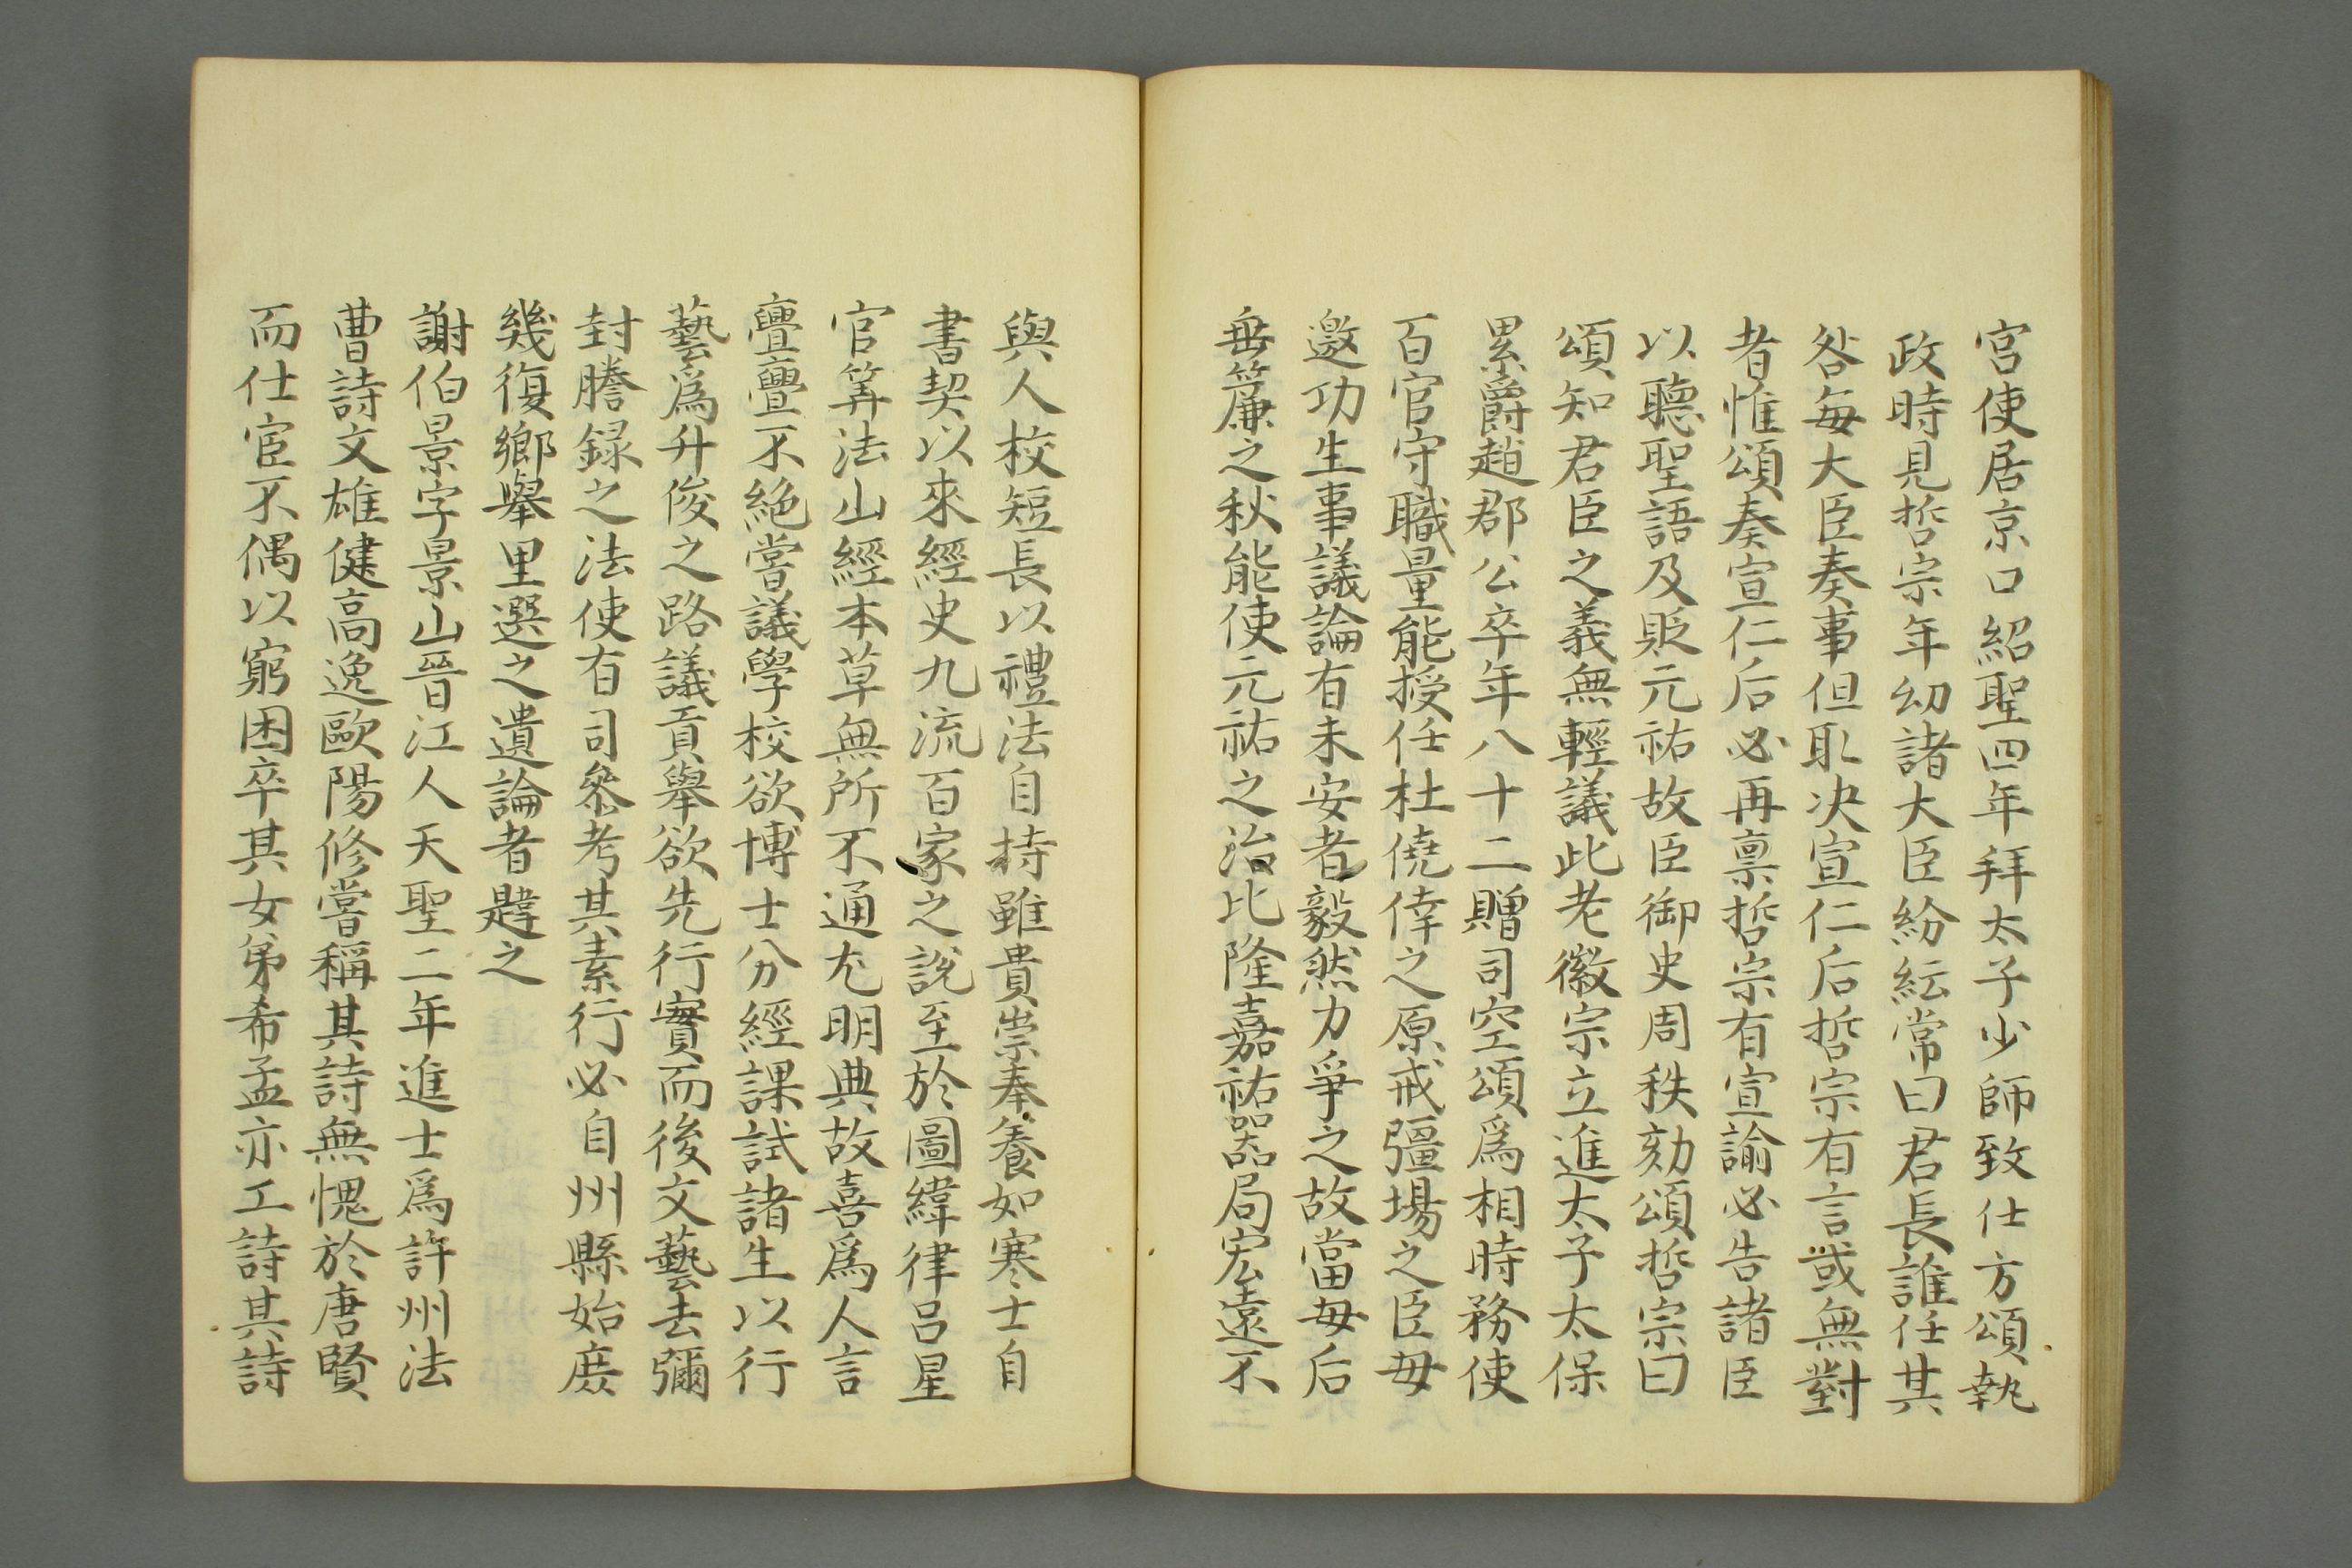 宮使居京口紹聖四年拜太子少師致仕方頌執
政時見哲宗年幼諸大臣紛紜常曰君長誰任其
咎每大臣奏事但取决宣仁后哲宗有言或無對
者惟頌奏宣仁后必再禀哲宗有宣諭必告諸臣
以聽聖語及貶元祐故臣御史周秩劾頌哲宗曰
頌知君臣之義無輕議此老徽宗立進太子太保
累爵趙郡公卒年八十二贈司空頌爲相時務使
百官守職量能授任杜僥倖之原戒彊場之臣毋
邀功生事議論有未安者毅然力爭之故當毋后
垂簾之秋能使元祐之治比隆嘉祐噐局宏遠不
與人校短長以禮法自持雖貴崇奉養如寒士自
書契以來經史九流百家之說至於圖緯律吕星
官筭法山經本草無所不通尤明典故喜爲人言
亹亹不絕嘗議學校欲博士分經課試諸生以行
藝爲升俊之路議貢舉欲先行實而後文藝去彌
封謄録之法使有司叅考其素行必自州縣始庻
幾復鄉舉里選之遺論者韙之
謝伯景字景山晉江人天聖二年進士爲許州法
曹詩文雄健高逸歐陽修嘗稱其詩無愧於唐賢
而仕宦不偶以窮困卒其女弟希孟亦工詩其詩